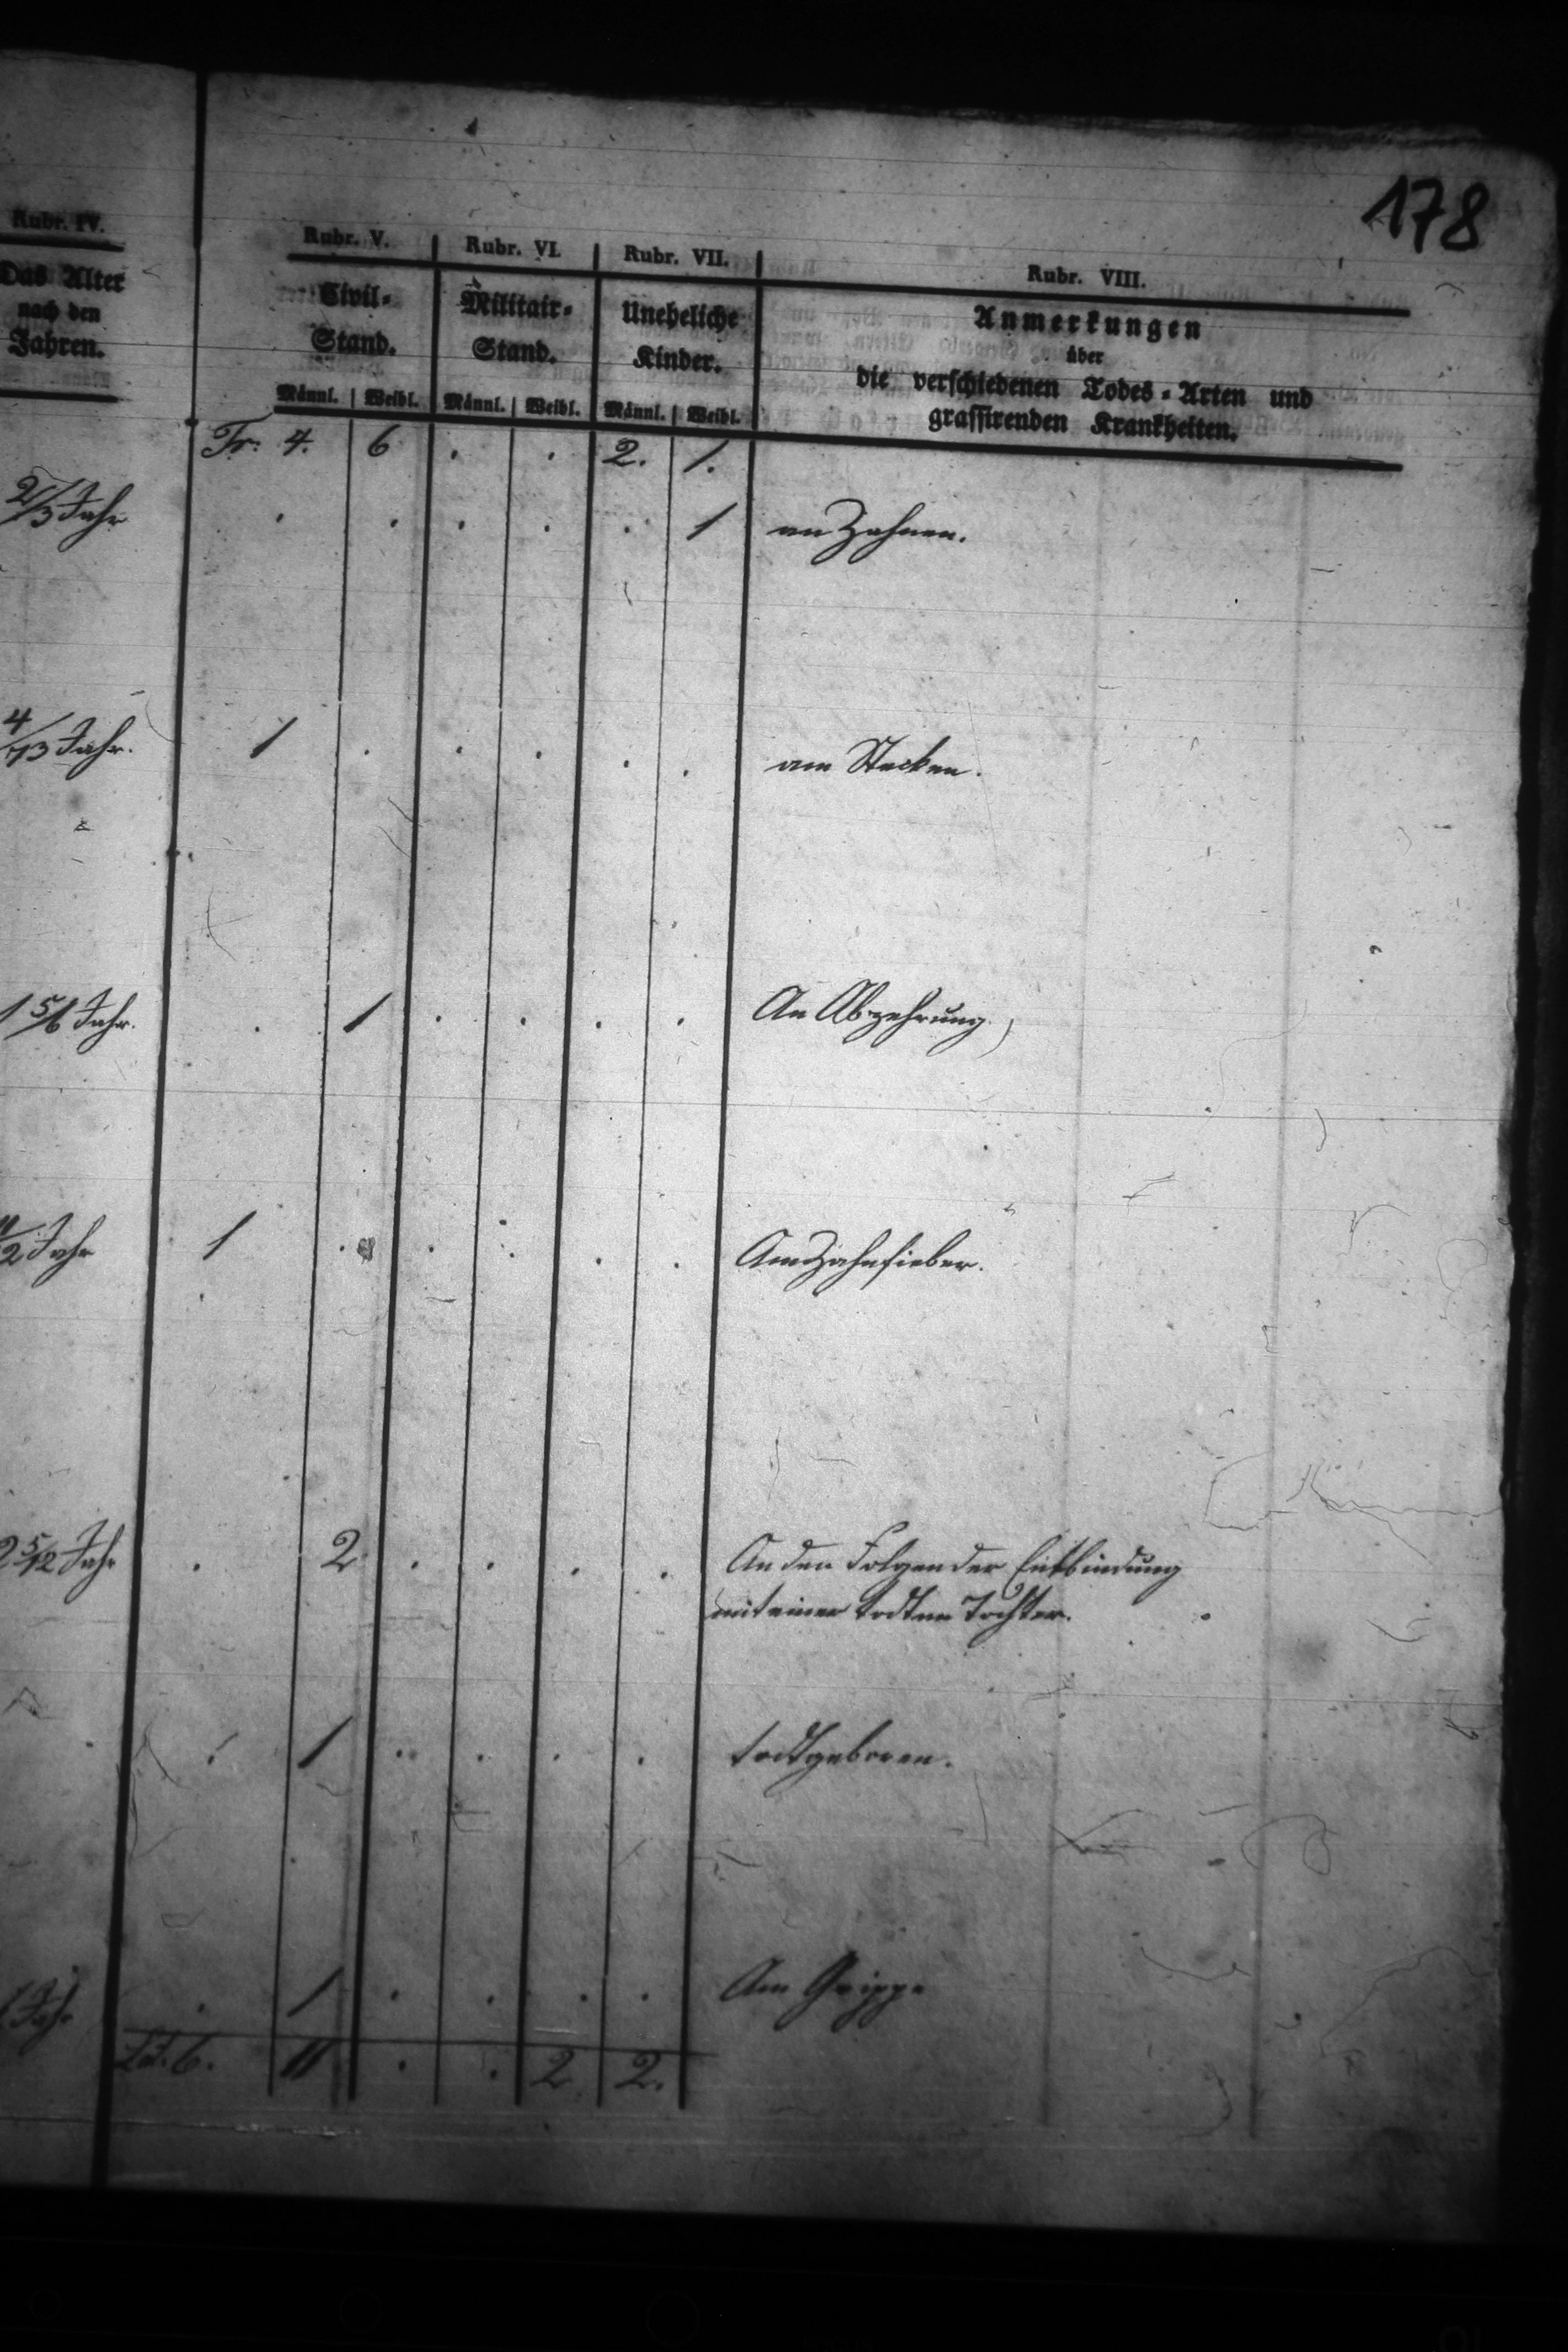 178
Rubr. IV. Rubr. V. Rubr. VI. Rubr. VII. Rubr. VIII.
Das Alter nach den Jahren. Civil-Stand. Militair-Stand. Uneheliche Kinder. Anmerkungen
über
die verschiedenen Todes-Arten und
grassirenden Krankheiten.
Männl. Weibl. Männl. Weibl. Männl. Weibl.
Tr: 4. 6 . . 2. 1.
2/3 Jahr . . . . . 1 an Zahnen.
4/13 Jahr. 1 . . . . . am Stecken.
1 5/6 Jahr. . 1 . . . . An Abzehrung.
Jahr 1 . . . . . Am Zahnfieber.
2 5/12 Jahr . 2 . . . . An den Folgen der Entbindung
mit einer todten Tochter.
. 1 . . . . todtgeboren.
1 Jahr . 1 . . . . Am Grippe
Lt. 6. 11 . . 2 2.